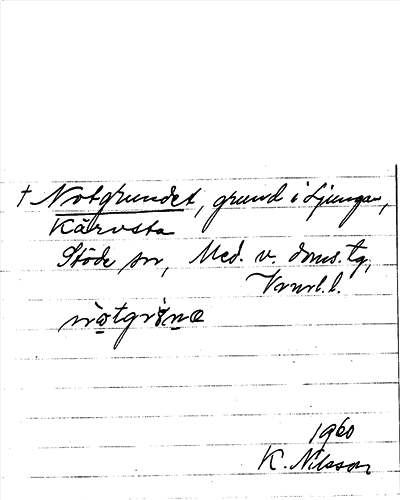 † Notgrundet, grund i Ljungan,
Kärvsta
Stöde sn, Med. v. doms. tg,
Vnorl. l.
nòtgrɤ̀nə
1960
K. Nilsson